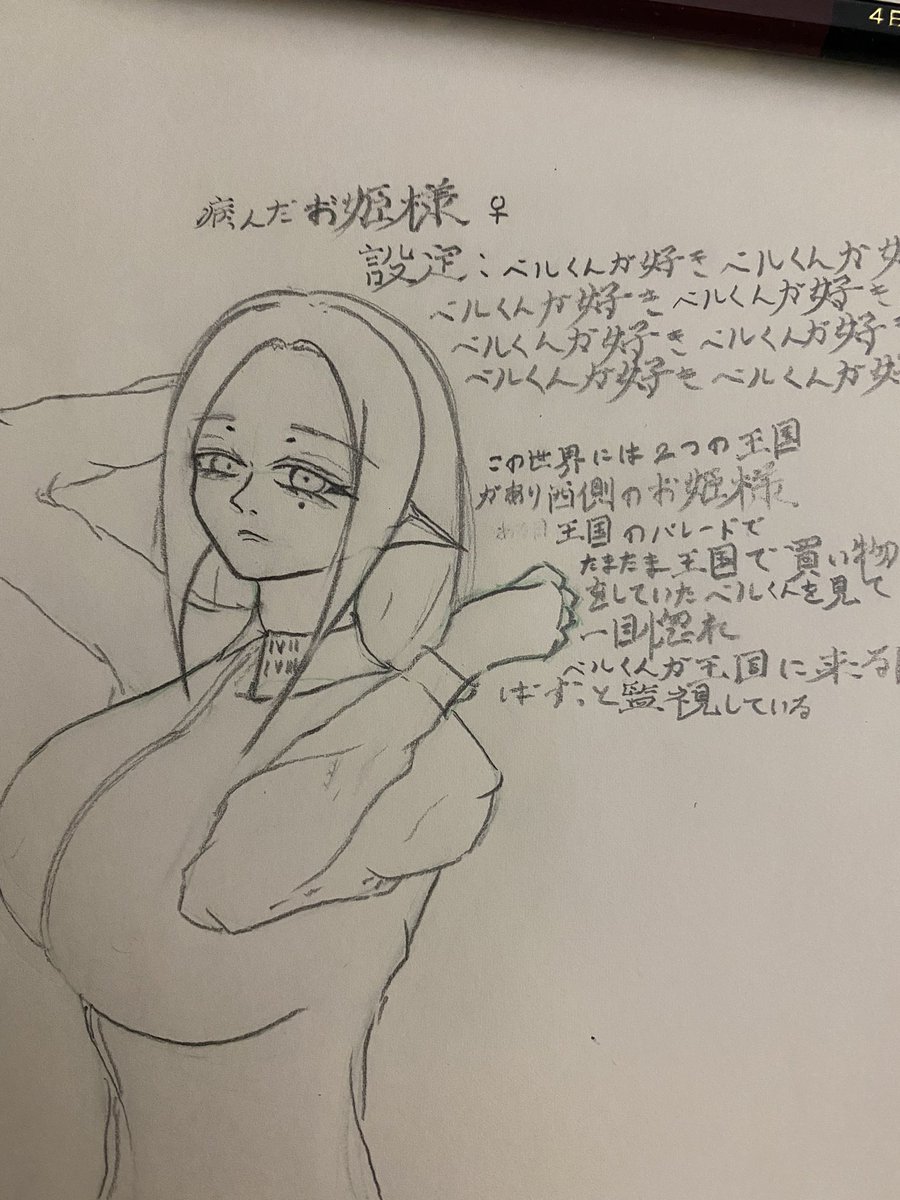 4日
病んだお姫様 ♀
設定:ベルくんが好き ベルくんが好
ベルくんが好き ベルくんが好き
ベルくんが好き ベルくんが好き
ベルくんが好き ベルくんが好
この世界には2つの王国
があり西側のお姫様
王国のパレードで
たまたま王国で買い物
をしていたベルくんを見て
一目惚れ
ベルくんが王国に来る
ばずっと監視している
IVII
IVII